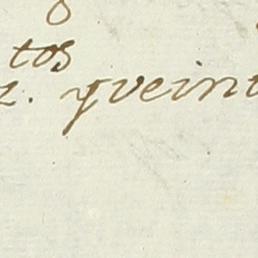 tos
z. yveint